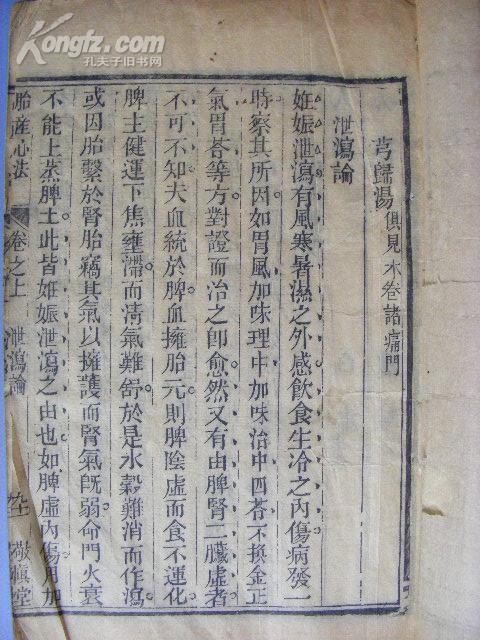 Kongfz.com
孔夫子旧书网
芎歸湯俱見本卷諸痛門
泄瀉論
姙娠泄瀉有風寒暑濕之外感飲食生冷之內傷病發一
時察其所因如胃風加味理中加味治中四苓不換金正
氣胃苓等方對證而治之卽愈然又有由脾腎二臟虛者
不可不知夫血統於脾血擁胎元則脾陰虛而食不運化
脾主健運下焦壅滯而清氣難舒於是水穀難消而作瀉
或因胎繫於腎胎竊其氣以擁護而腎氣旣弱命門火衰
不能上蒸脾土此皆姙娠泄瀉之由也如脾虛內傷用加
胎產心法 卷之上 泄瀉論 敬愼堂